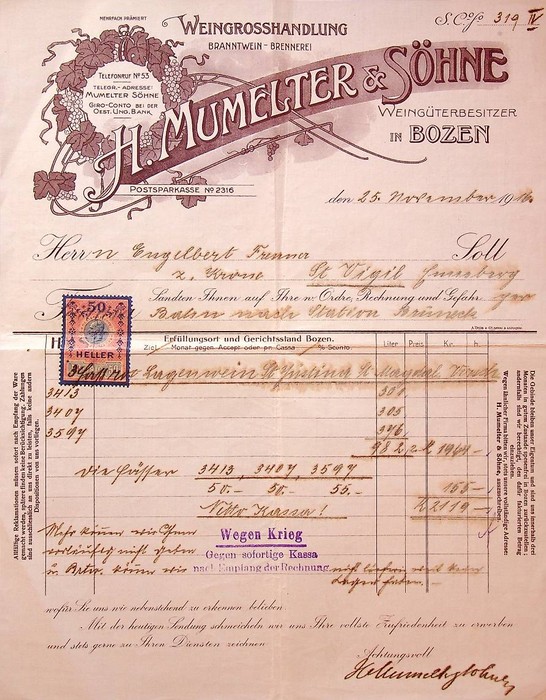 MEHRFACH PRÄMIERT
WEINGROSSHANDLUNG
BRANNTWEIN-BRENNEREI
S. Co/o 319 IV
TELEFONRUF No 53
TELEGR.-ADRESSE:
MUMELTER SÖHNE
GIRO-CONTO BEI DER
OEST. UNG. BANK
H. MUMELTER & SÖHNE
WEINGÜTERBESITZER
IN BOZEN
POSTSPARKASSE No 2316
den 25. November 1916.
Herrn Engelbert
z. Krone St Vigil Enneberg
Soll
Sandten Ihnen auf Ihre w. Ordre, Rechnung und Gefahr per
Bahn nach Station Bruneck
50
HELLER
Erfüllungsort und Gerichtsstand Bozen.
Ziel Monat gegen Accept oder pr. Cassa % Sconto.
Liter Preis Kr. h
3 Fass Lagenwein St Justina St Magdal.
3413 301
3407 305
3597 376
982 2.- 1964 -
die Fässer 3413 3407 3597
50.- 50.- 55.- 155 -
Netto Kassa! K 2119 -
Mehr können wir Ihnen
vorläufig nicht geben
u. können wir nicht
Wegen Krieg
Gegen sofortige Kassa
nach Empfang der Rechnung
Allfällige Reklamationen müssen sofort nach Empfang der Ware
gemacht werden, spätere finden keine Berücksichtigung. Zahlungen
sind ausschliesslich an uns direkt zu leisten, falls keine andern
Dispositionen von uns vorliegen.
Die Gebinde bleiben unser Eigentum und sind uns innerhalb drei
Monaten in gutem Zustande spesenfrei in Bozen zurückzustellen
andernfalls sind wir berechtigt, den dafür fakturierten Betrag
einzuziehen.
Wegen ähnlicher Firma bitten wir, stets unsere vollständige Adresse:
H. Mumelter & Söhne, auszuschreiben.
wofür Sie uns wie nebenstehend zu erkennen belieben
Mit der heutigen Sendung schmeicheln wir uns Ihre vollste Zufriedenheit zu erwerben
und stets gerne zu Ihren Diensten zeichnen
Achtungsvoll
HMumelter&Söhne